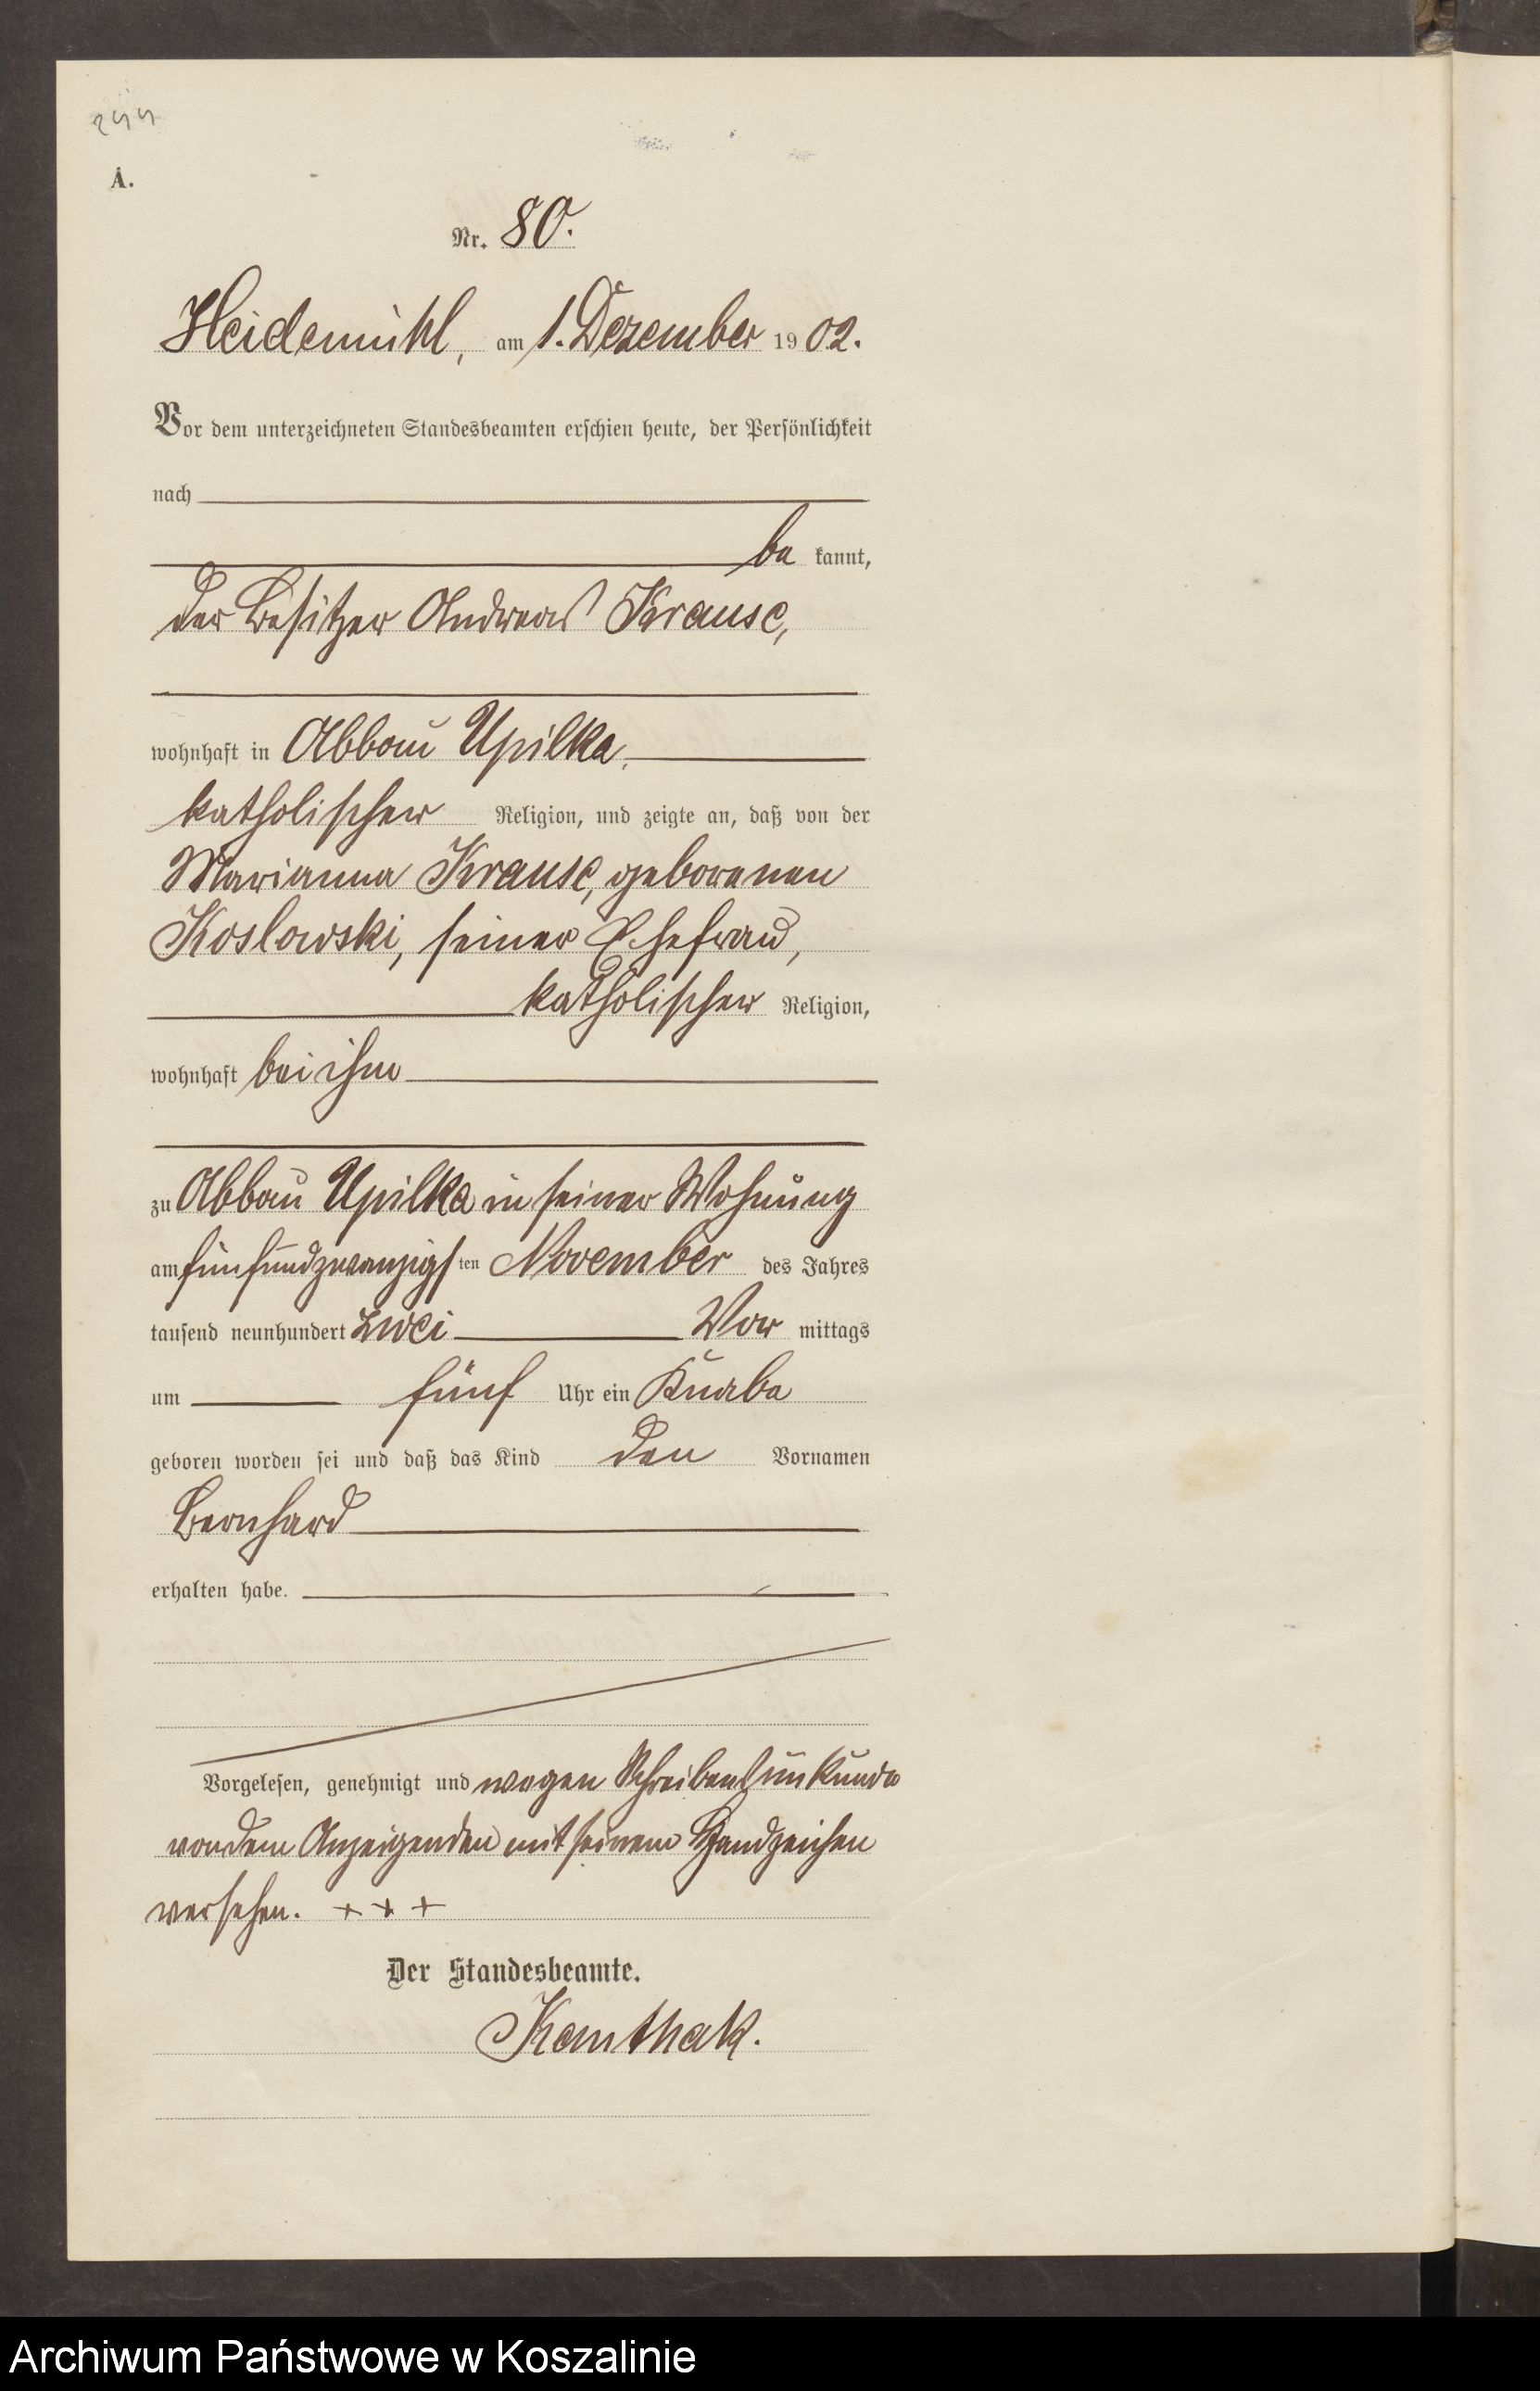 244
A.
Nr. 80.
Heidemühl, am 1. Dezember 1902.
Vor dem unterzeichneten Standesbeamten erschien heute, der Persönlichkeit
nach
be kannt,
der Besitzer Andreas Krause,
wohnhaft in Abbau Upilka,
katholischer Religion, und zeigte an, daß von der
Marianna Krause, geborenen
Koslowski, seiner Ehefrau,
katholischer Religion,
wohnhaft bei ihm
zu Abbau Upilka in seiner Wohnung
am fünfundzwanzigsten November des Jahres
tausend neunhundert zwei Vor mittags
um fünf Uhr ein Knabe
geboren worden sei und daß das Kind den Vornamen
Bernhard
erhalten habe.
Vorgelesen, genehmigt und wegen Schreibensunkunde
von dem Anzeigenden mit seinem Handzeichen
versehen. + + +
Der Standesbeamte.
Kanthak.
Archiwum Państwowe w Koszalinie